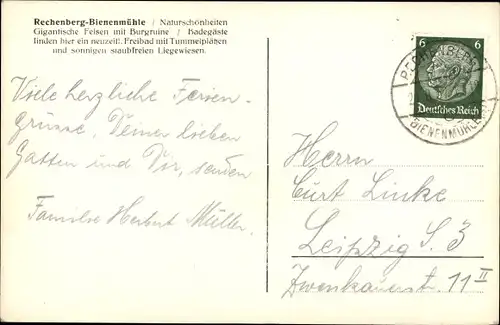 Rechenberg-Bienenmühle / Naturschönheiten
Gigantische Felsen mit Burgruine / Badegäste
finden hier ein neuzeitl. Freibad mit Tummelplätzen
und sonnigen staubfreien Liegewiesen.
6 6
Deutsches Reich
BIENENMÜHLE
Viele herzliche Ferien-
grüsse, Deiner lieben
Gatten und Dir, senden
Familie Herbert Müller.
Herrn
Curt Linke
Leipzig S. 3
Zwenkauerst. 11 II